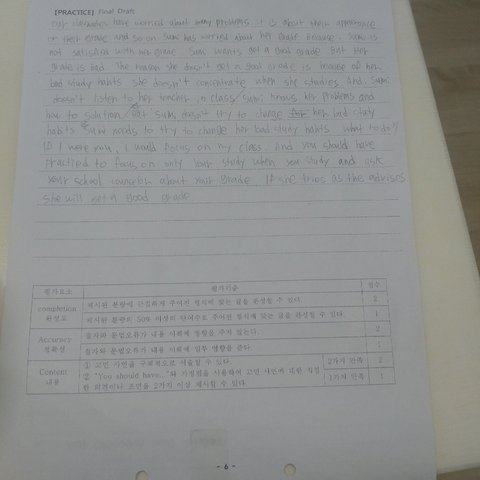 [PRACTICE] Final Draft
Our classmates have worried about many problems. It is about their appearance
or their grade and so on. Sumi has worried about her grade because. Sumi is
not satisfied with her grade. Sumi wants get a good grade. But Her
grade is bad. The reason she doesn't get a good grade is because of her
bad study habits she doesn't concentrate when she studies And. Sumi
doesn't listen to her teacher in class. Sumi knows her problems and
how to solution. But Sumi doesn't try to change her bad study
habits Sumi needs to try to change her bad study habits what to do?
If I were you, I would focus on my class. And you should have
practiced to focus on only your study when you study and ask
your school counselor about your grade. If she tries as the advises
she will get a good grade
평가요소 평가기준 점수
completion 완성도 제시된 분량에 근접하게 주어진 형식에 맞는 글을 완성할 수 있다. 2
제시된 분량의 50% 이상의 단어수로 주어진 형식에 맞는 글을 완성할 수 있다. 1
Accuracy 정확성 철자와 문법오류가 내용 이해에 영향을 주지 않는다. 2
철자와 문법오류가 내용 이해에 일부 영향을 준다. 1
Content 내용 ① 고민 사연을 구체적으로 서술할 수 있다. 2가지 만족 2
② "You should have.."와 가정법을 사용하여 고민 사연에 대한 적절
한 의견이나 조언을 2가지 이상 제시할 수 있다. 1가지 만족 1
- 6 -